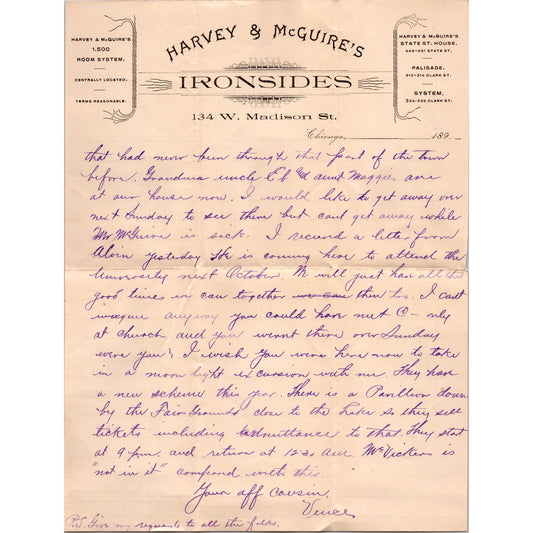 HARVEY & McGUIRE'S
1,500
ROOM SYSTEM.
CENTRALLY LOCATED;
TERMS REASONABLE.
HARVEY & McGUIRE'S
IRONSIDES
134 W. Madison St.
HARVEY & McGUIRE'S
STATE ST. HOUSE,
449-451 STATE ST.
PALISADE,
310-314 CLARK ST.
SYSTEM,
334-336 CLARK ST.
Chicago, 189
that had never been through that part of the town
before. Grandma uncle Eb & aunt Maggie are
at our house now. I would like to get away over
next Sunday to see them but cant get away while
Mr McGuire is sick. I received a letter from
Alvin yesterday He is coming here to attend the
University next October. We will just have all the
good times we can together then too. I cant
imagine anyway you could have met C- only
at church and you wernt there over Sunday
were you? I wish you were here now to take
in a moon light excursion with me. They have
a new scheme this year. There is a Pavillion down
by the Fair Grounds close to the Lake so they sell
tickets including admittance to that. They start
at 9 p.m. and return at 12:30 A.M. McVickers is
"not in it" compared with this.
Your aff cousin
Vence
P.S. Give my requests to all the folks.